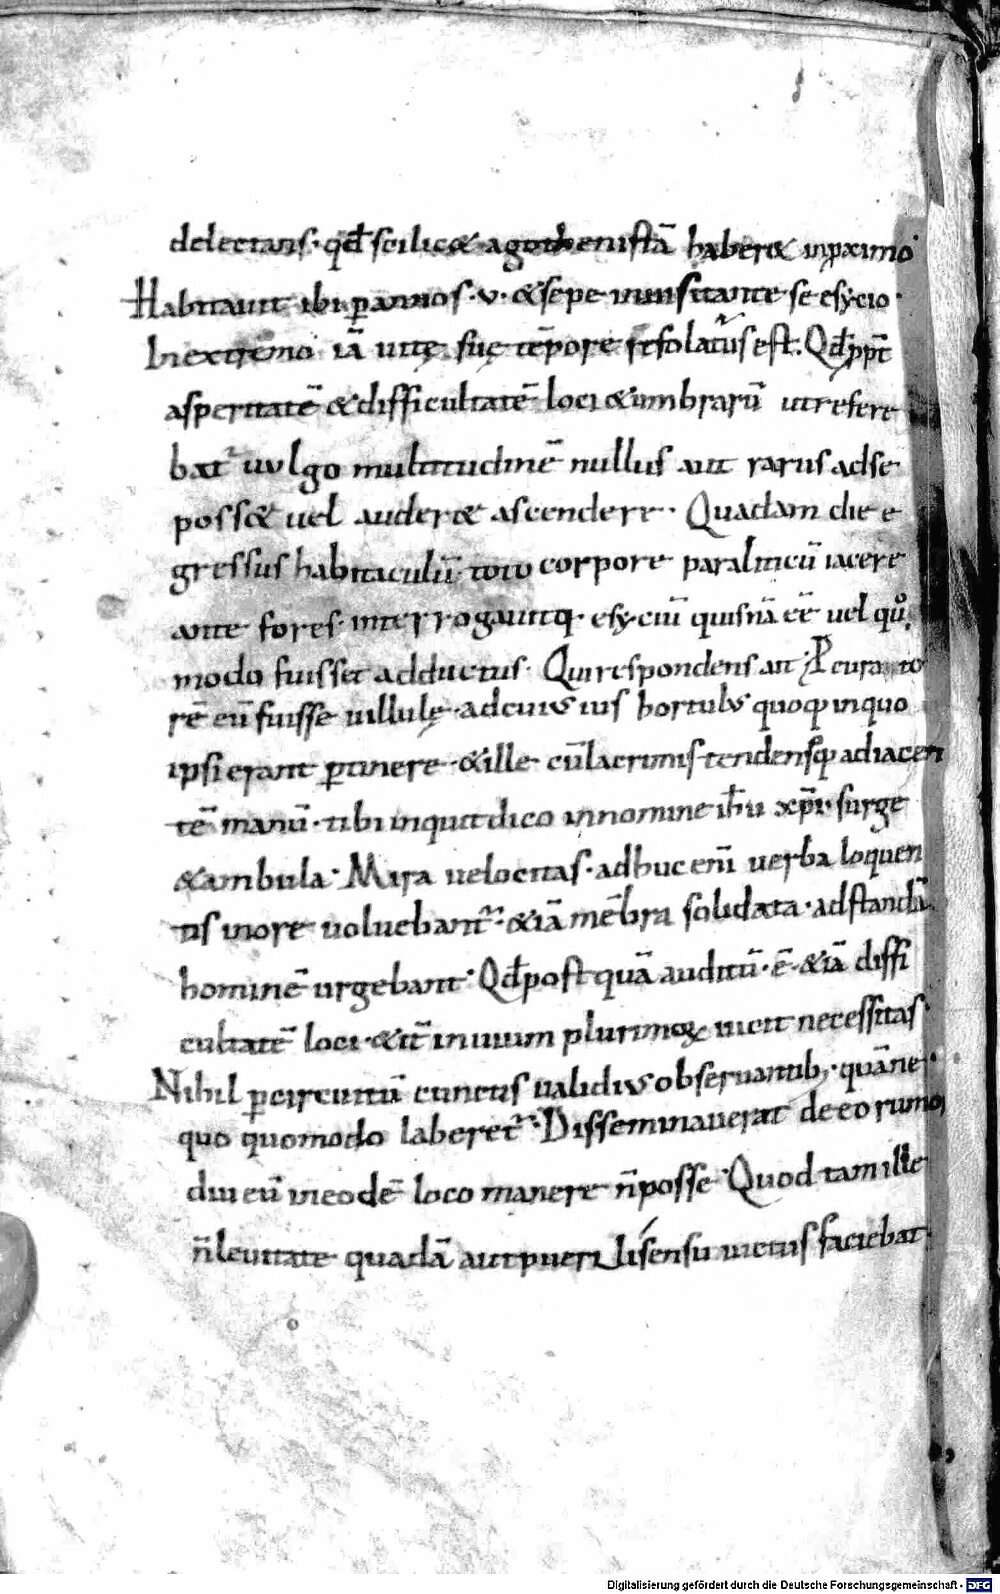 delectans · qđ scilic& agothenistā haber& inpximo
Habitauit ibi p annos · v · & sepe inuisitante se esycio ·
In extremo iā uitę suę tēpore cōsolatus est. Qđ ppt
asperitatē & difficultatē loci & umbrarū ut refere
bat uulgo multitudinē nullus aut rarus ad se
poss& uel auder& ascendere · Quadam die e
gressus habitaculū toto corpore paraliticū iacere
ante fores · interrogauitq · esyciū quisnā eē uel quo
modo fuisset adductus · Qui respondens ait · Pcurato
rē eū fuisse uillulę · ad cuius ius hortulus quoq in quo
ipsi erant ptinere · & ille cū lacrimis tendensq adiacen
tē manū · tibi inquit dico in nomine ihu xpi · surge
& ambula · Mira uelocitas · adhuc enī uerba loquen
tis in ore uoluebant · & iā mēbra solidata · ad standū
hominē urgebant · Qđ post quā auditū · ē · & iā diffi
cultatē loci · & it inuium plurimoꝝ uicit necessitas ·
Nihil p circuitū cunctis validius obseruantib; · quā ne
quo quomodo laberet · Disseminauerat de eo rumor
diu eū in eodē loco manere n̄ posse · Quod tam ille
n̄ leuitate quadā aut puerili sensu uictus faciebat ·
Digitalisierung gefördert durch die Deutsche Forschungsgemeinschaft - DFG